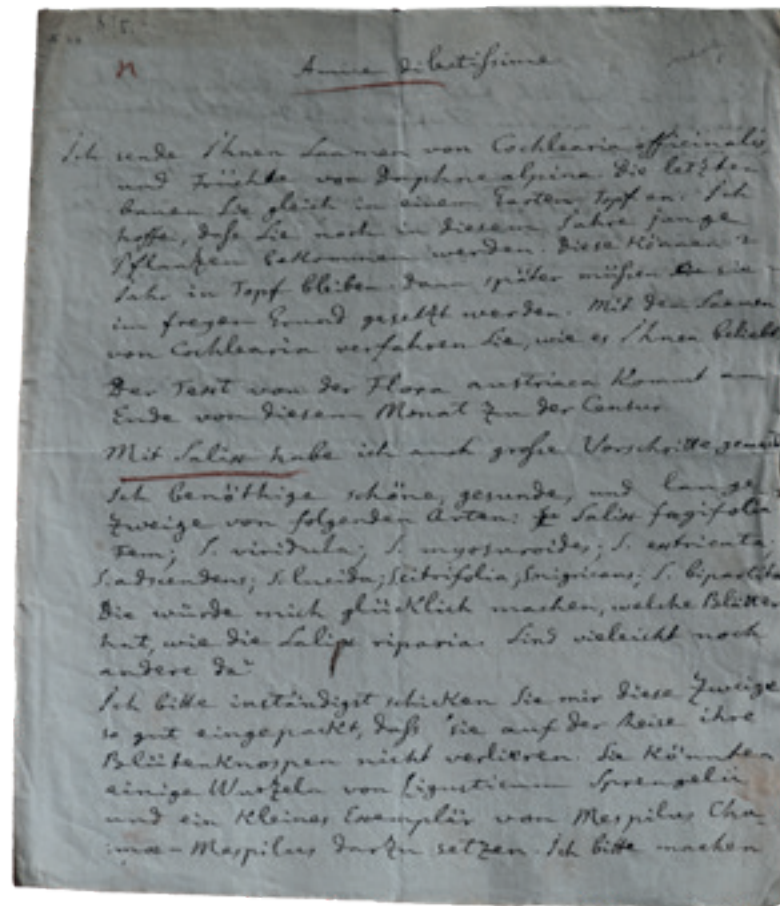 Amice dilectissime
Ich sende Ihnen Saamen von Cochlearia officinalis
und Früchte von Daphne alpina. Die letzten
bauen Sie gleich in einem Garten Topf an. Ich
hoffe, daß Sie noch in diesem Jahre junge
Pflanzen bekommen werden. Diese können 2
Jahr in Topf bleiben. Dann später müßen sie
im freyen Grund gesetzt werden. Mit dem Saamen
von Cochlearia verfahren Sie, wie es Ihnen beliebt
Der Text von der Flora austriaca kommt am
Ende von diesem Monat zu der Censur
Mit Salix habe ich auch große Vorschritte
Ich benöthige schöne, gesunde, und lange
Zweige von folgenden Arten: Salix fagifolia
S. viridula; S. myrsinoides; S.
S. adscendens; S. lucida; S. citrifolia; S. nigricans; S. bipartita
Die würde mich glücklich machen, welche Blätter
hat, wie die Salix riparia. Sind vieleicht noch
andere da?
Ich bitte inständigst schicken Sie mir diese Zweige
so gut eingepackt, daß sie auf der Reise ihre
Blütenknospen nicht verlieren. Sie könnten
einige Wurzeln von Ligusticum Sprengelii
und ein kleines Exemplär von Mespilus Cha-
mae-Mespilus darzu setzen. Ich bitte machen